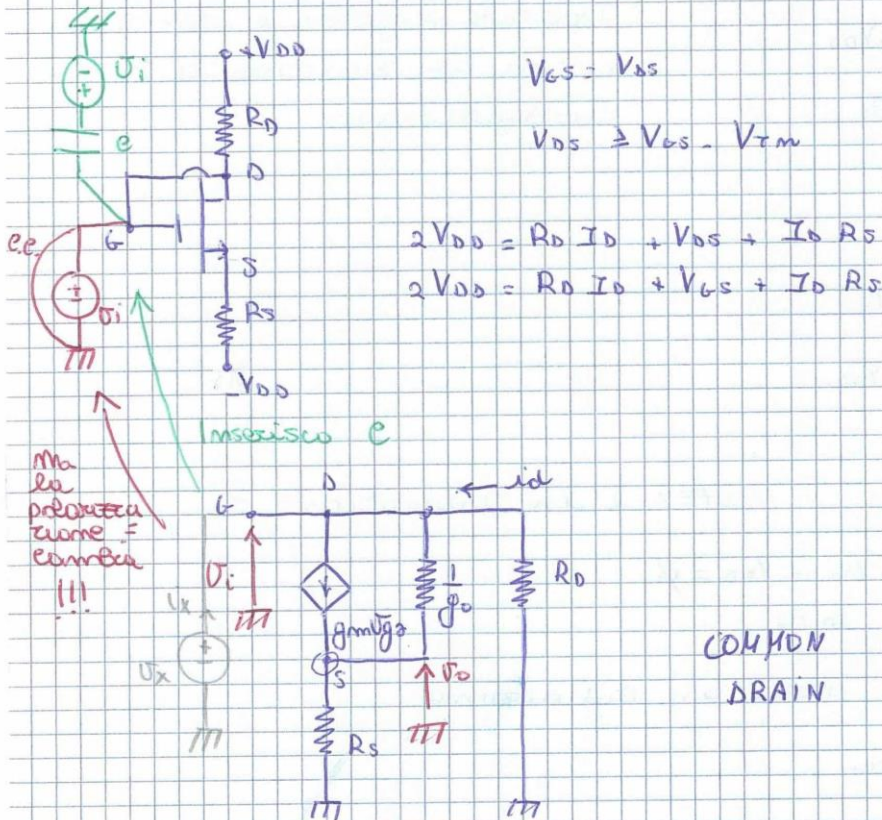 +VDD
vi
- +
C
RD
D
G
S
RS
-VDD
c.c.
vi
VGS = VDS
VDS ≥ VGS - VTn
2VDD = RD ID + VDS + ID RS
2VDD = RD ID + VGS + ID RS
Inserisco C
Ma
la
polarizza
zione =
cambia
!!!
G
D
id
vi
gmvgs
1/go
RD
ix
vx
S
vo
RS
COMMON
DRAIN